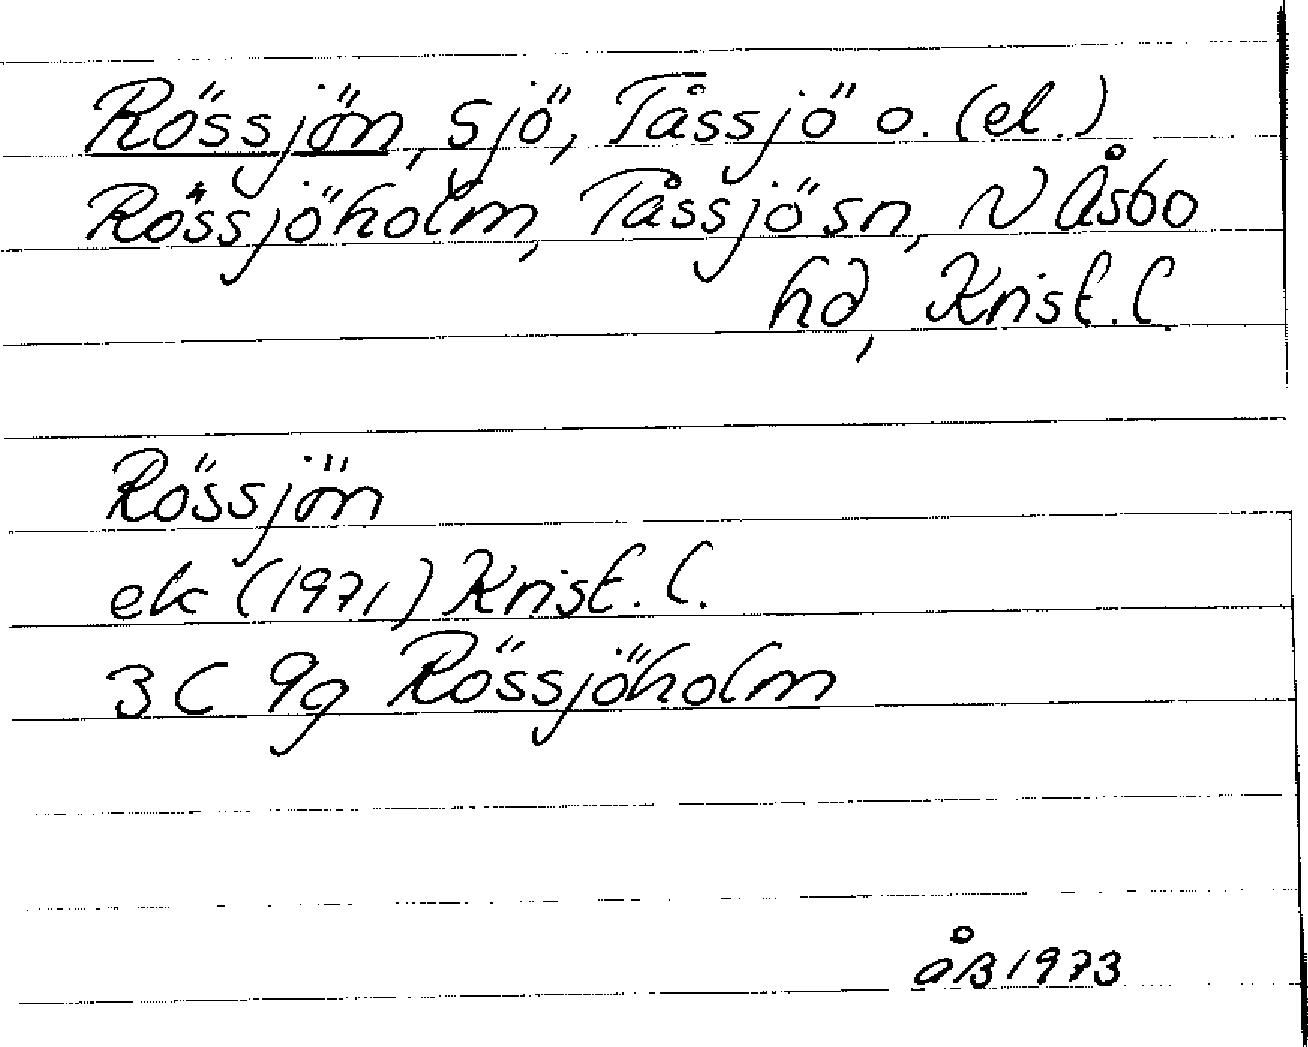 Rössjön, sjö, Tåssjö o. (el.)
Rössjöholm, Tåssjö sn, N Åsbo
hd, Krist. l.
Rössjön
ek (1971) Krist. l.
3C 9g Rössjöholm
åB 1973